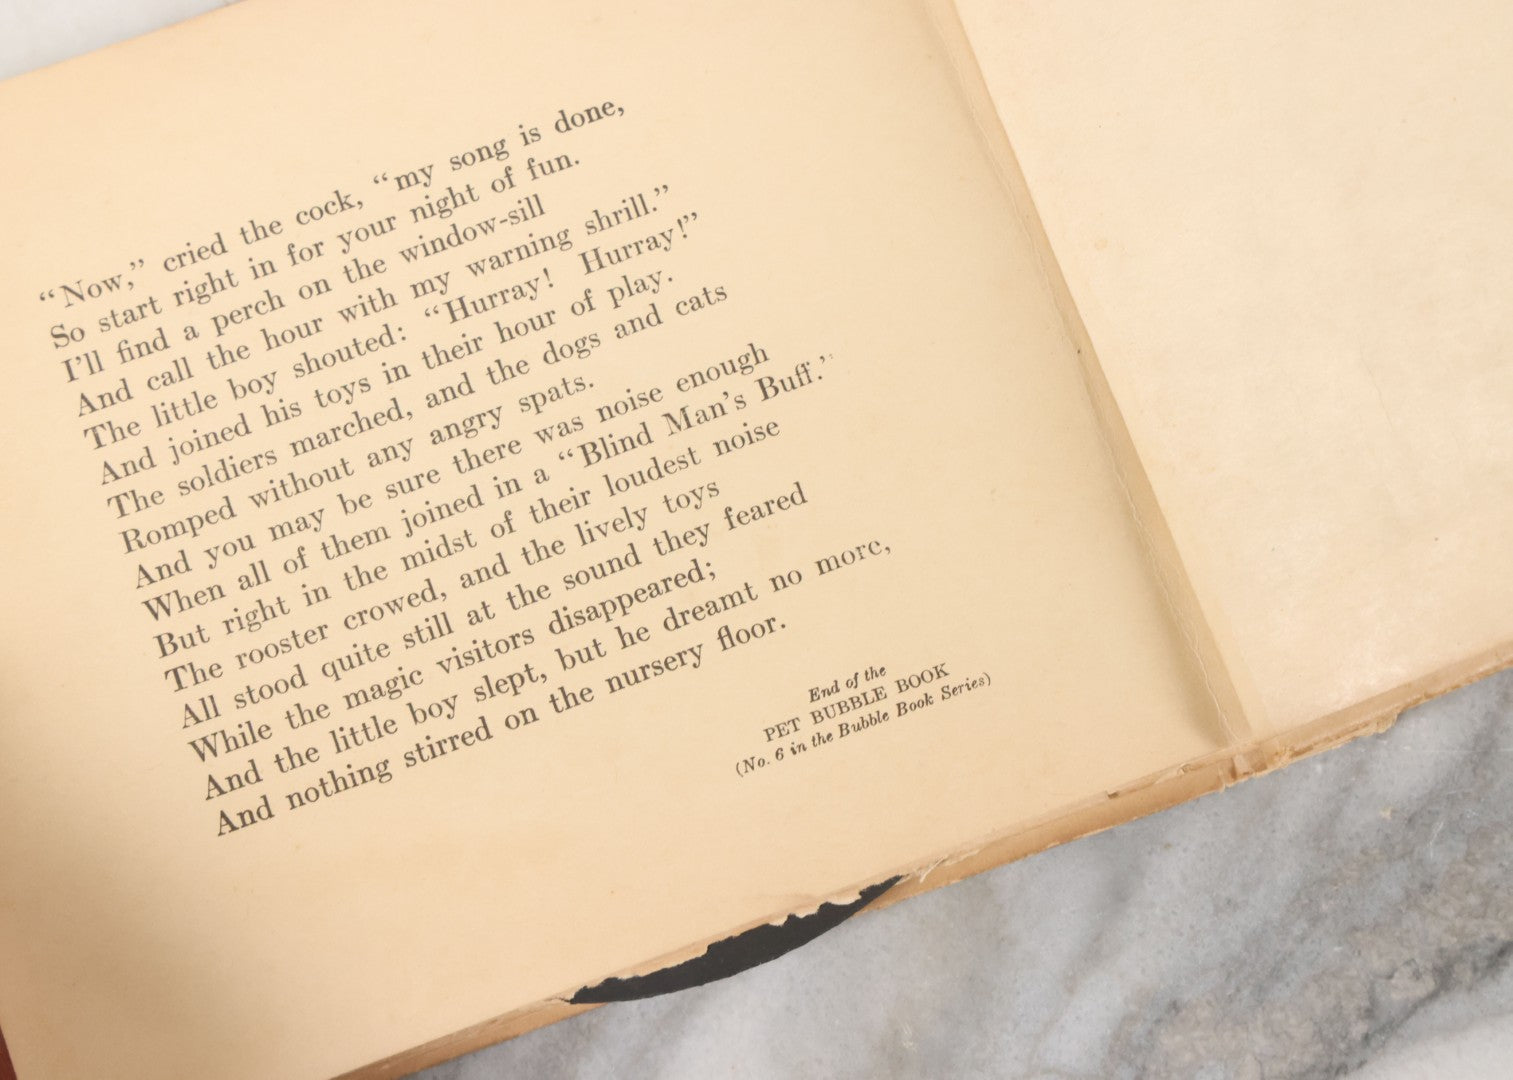 “Now,” cried the cock, “my song is done,
So start right in for your night of fun.
I’ll find a perch on the window-sill
And call the hour with my warning shrill.”
The little boy shouted: “Hurray! Hurray!”
And joined his toys in their hour of play.
The soldiers marched, and the dogs and cats
Romped without any angry spats.
And you may be sure there was noise enough
When all of them joined in a “Blind Man’s Buff.”
But right in the midst of their loudest noise
The rooster crowed, and the lively toys
All stood quite still at the sound they feared
While the magic visitors disappeared;
And the little boy slept, but he dreamt no more,
And nothing stirred on the nursery floor.
End of the
PET BUBBLE BOOK
(No. 6 in the Bubble Book Series)